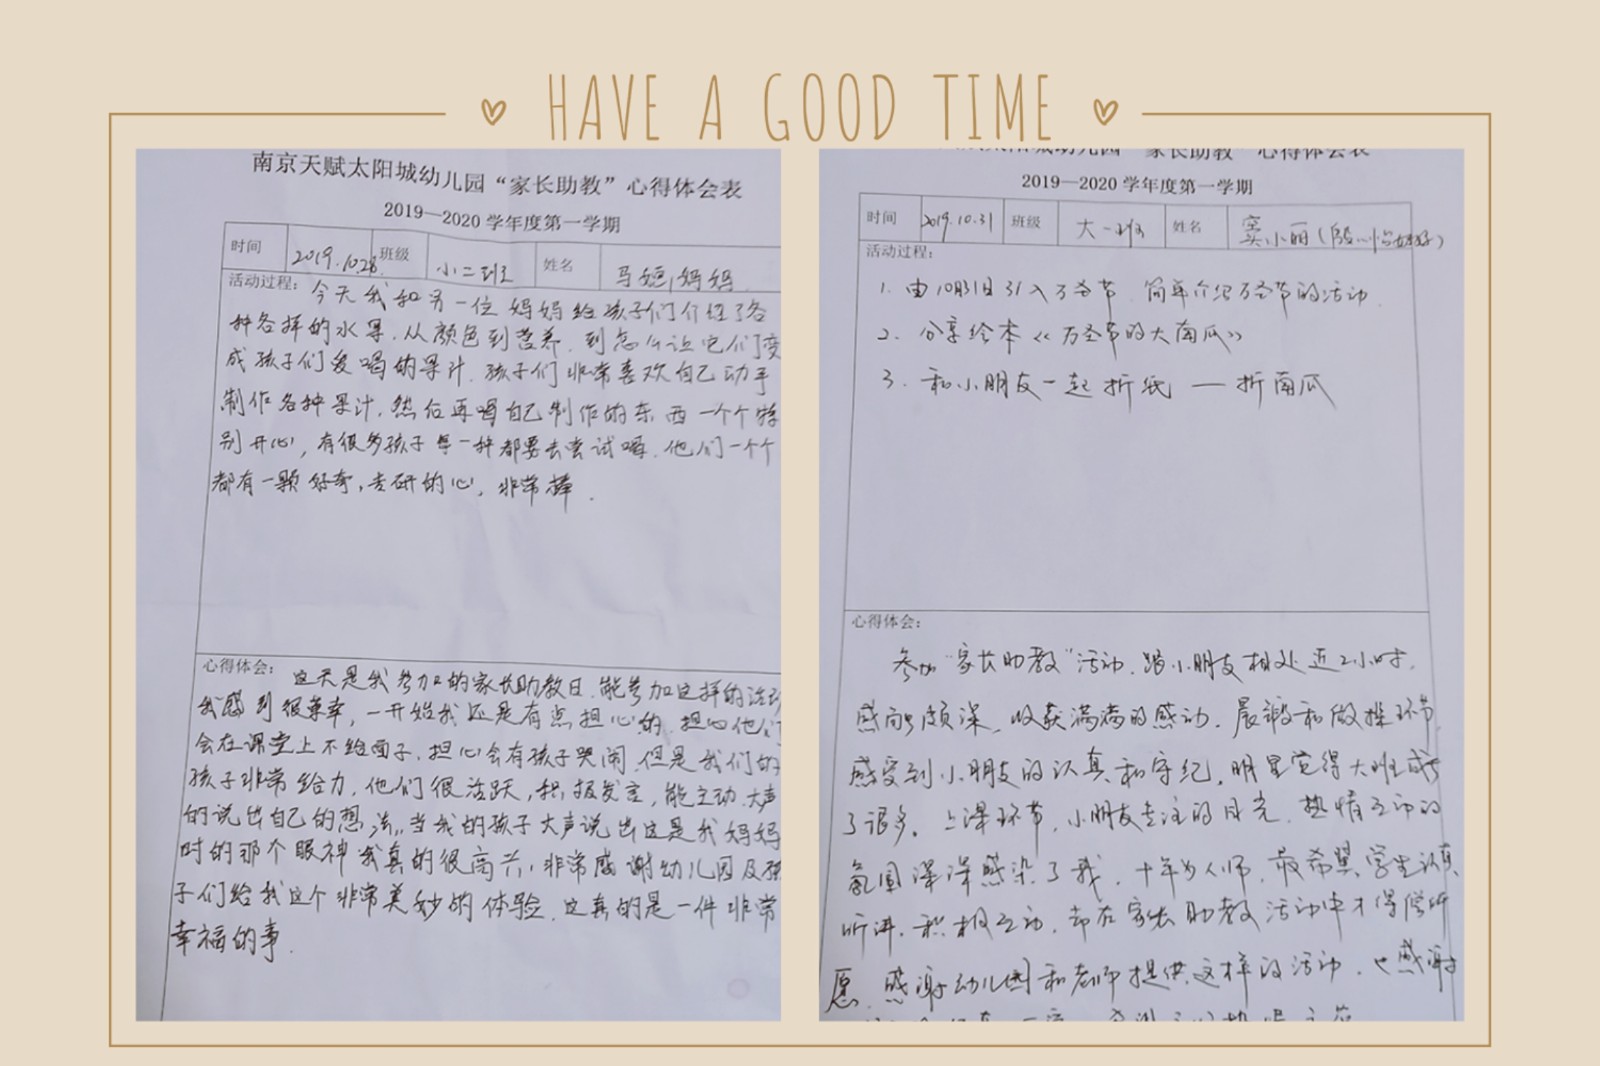 HAVE A GOOD TIME
南京天赋太阳城幼儿园“家长助教”心得体会表
2019—2020 学年度第一学期
时间 2019.10.28. 班级 小二班 姓名 马 妈妈
活动过程：今天我和另一位妈妈给孩子们介绍了各
种各样的水果,从颜色到营养,到怎么让它们变
成孩子们爱喝的果汁.孩子们非常喜欢自己动手
制作各种果汁,然后再喝自己制作的东西一个个特
别开心,有很多孩子每一种都要去尝试喝.他们一个个
都有一颗好奇,专研的心,非常棒.
心得体会：这天是我参加的家长助教日.能参加这样的活动
我感到很荣幸,一开始我还是有点担心的.担心他们
会在课堂上不给面子.担心会有孩子哭闹.但是我们的
孩子非常给力.他们很活跃,积极发言,能主动.大声
的说出自己的想法.当我的孩子大声说出这是我妈妈
时的那个眼神我真的很高兴,非常感谢幼儿园及孩
子们给我这个非常美妙的体验.这真的是一件非常
幸福的事.
“家长助教”心得体会表
2019—2020 学年度第一学期
时间 2019.10.31 班级 大一班 姓名 窦小丽
活动过程：
1. 由10月31日引入万圣节.简单介绍万圣节的活动.
2. 分享绘本《万圣节的大南瓜》
3. 和小朋友一起折纸 — 折南瓜
心得体会：
参加“家长助教”活动.跟小朋友相处近2小时.
感触颇深.收获满满的感动.晨锻和做操环节
感受到小朋友的认真和守纪.明显觉得大班成长
了很多.上课环节,小朋友专注的目光.热情互动的
氛围深深感染了我.十年为人师.最希望学生认真
听讲.积极互动.却在家长助教活动中才得偿所
愿.感谢幼儿园和老师提供这样的活动.也感谢